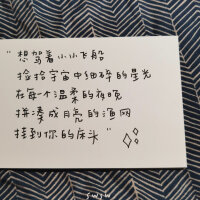 "想驾着小小飞船
捡拾宇宙中细碎的星光
在每个温柔的夜晚
拼凑成月亮的渔网
挂到你的床头"